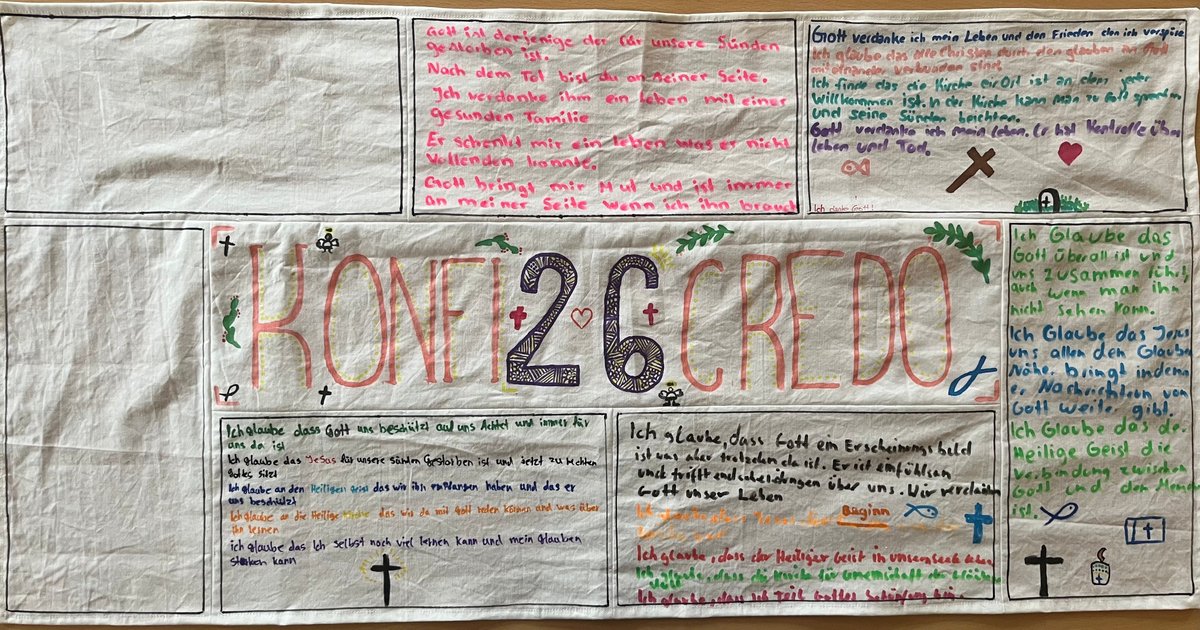 Gott ist derjenige der für unsere Sünden
gestorben ist.
Nach dem Tot bist du an seiner Seite.
Ich verdanke ihm ein Leben mit einer
gesunden Familie
Er schenkt mir ein leben was er nicht
vollenden konnte.
Gott bringt mir Mut und ist immer
an meiner Seite wenn ich ihn brauch
Gott verdanke ich mein Leben und den Frieden den ich verspüre
Ich glaube das alle Christen durch den glauben an Gott
miteinander verbunden sind.
Ich finde das die Kirche ein Ort ist an dem jeder
willkommen ist. In der Kirche kann man zu Gott sprechen
und seine Sünden beichten.
Gott verdanke ich mein Leben. Er hat Kontrolle über
leben und Tod.
Ich danke Gott!
KONFI 26 CREDO
Ich Glaube das
Gott überall ist und
uns zusammen führt,
auch wenn man ihn
nicht sehen kann.
Ich Glaube das Jesus
uns allen den Glaube
Nähe bringt indem
er Nachrichten von
Gott weiter gibt.
Ich Glaube das de.
Heilige Geist die
verbindung zwischen
Gott und den Mensch
ist.
Ich glaube dass Gott uns beschützt auf uns Achtet und immer für
uns da ist
Ich glaube das Jesus für unsere sünden Gestorben ist und Jetzt zu Rechten
Gottes sitzt
Ich glaube an den Heiligen geist das wir ihn empfangen haben und das er
uns beschützt
Ich glaube an die Heilige Kirche das wir da mit Gott reden können und was über
ihn lernen
ich glaube das Ich selbst noch viel lernen kann und mein Glauben
Stärken kann
Ich glaube, dass Gott ein Erscheinungsbild
ist was aber trotzdem da ist. Er ist einfühlsam
und trifft entscheidungen über uns. Wir verdanken
Gott unser Leben
Ich glaube Beginn
Ich glaube, dass der Heiliger Geist in unserer Seele
Ich glaube, dass die Kirche für Gemeinschaft der
Ich glaube, dass ich Teil Gottes Schöpfung bin.